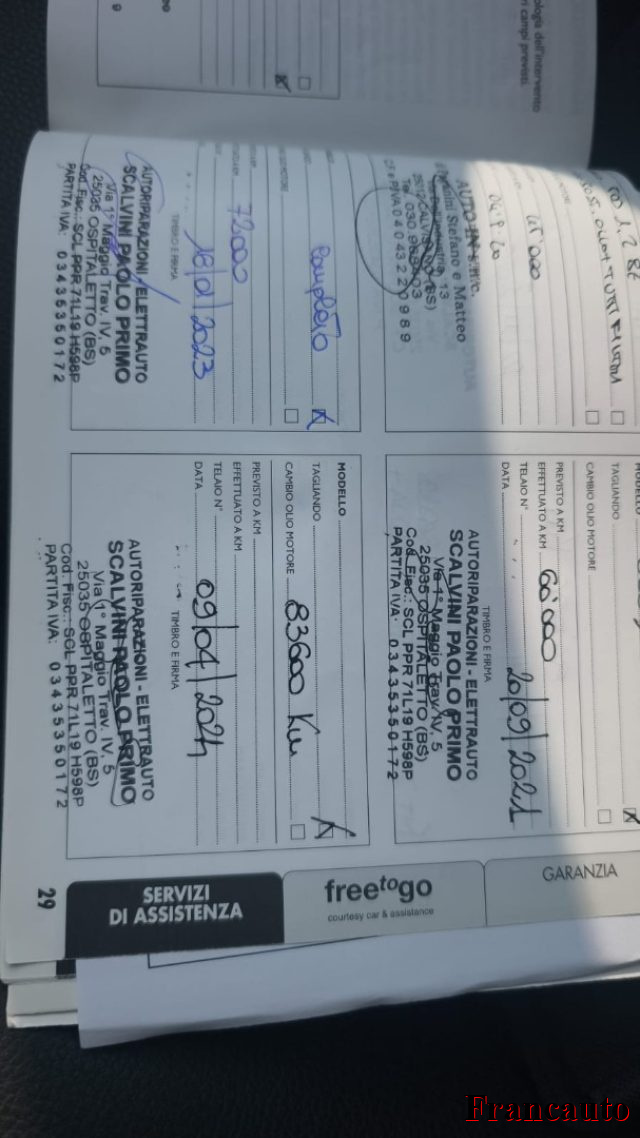 ologia dell'intervento
ri campi previsti.
45'000
AUTO IN s.n.c.
ini Stefano e Matteo
13
CALVISANO (BS)
Tel. 030
C.F. e P.IVA 04043220989
TAGLIANDO
CAMBIO OLIO MOTORE
PREVISTO A KM
EFFETTUATO A KM 60'000
TELAIO N°
DATA 20/09/2021
TIMBRO E FIRMA
AUTORIPARAZIONI - ELETTRAUTO
SCALVINI PAOLO PRIMO
Via 1° Maggio Trav. IV, 5
25035 OSPITALETTO (BS)
Cod. Fisc.: SCL PPR 71L19 H598P
PARTITA IVA: 03435350172
completo
72000
18/01/2023
TIMBRO E FIRMA
AUTORIPARAZIONI - ELETTRAUTO
SCALVINI PAOLO PRIMO
Via 1° Maggio Trav. IV, 5
25035 OSPITALETTO (BS)
Cod. Fisc.: SCL PPR 71L19 H598P
PARTITA IVA: 03435350172
MODELLO
TAGLIANDO
CAMBIO OLIO MOTORE 83600 Km
PREVISTO A KM
EFFETTUATO A KM
TELAIO N°
DATA 09/04/2024
TIMBRO E FIRMA
AUTORIPARAZIONI - ELETTRAUTO
SCALVINI PAOLO PRIMO
Via 1° Maggio Trav. IV, 5
25035 OSPITALETTO (BS)
Cod. Fisc.: SCL PPR 71L19 H598P
PARTITA IVA: 03435350172
GARANZIA
freetogo
courtesy car & assistance
SERVIZI
DI ASSISTENZA
29
Francauto